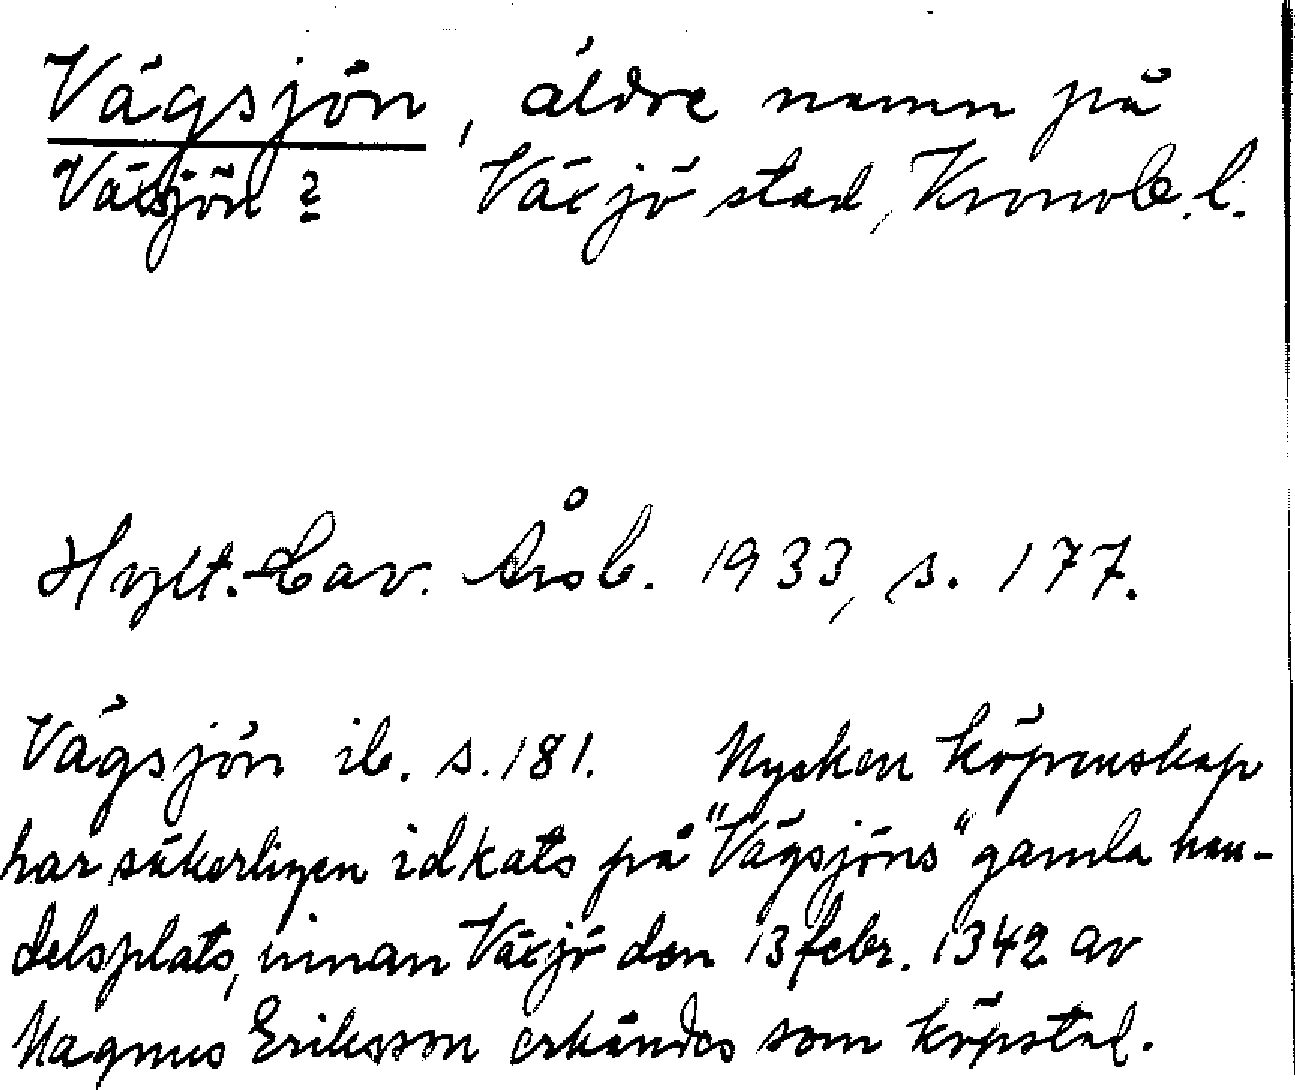 Vägsjön, äldre namn på
Växjön ? Växjö stad, Kronob. l.
Hylt.-Cav. Årsb. 1933, s. 177.
Vägsjön ib. s. 181. Mycken köpenskap
har säkerligen idkats på "Vägsjöns" gamla han-
delsplats, innan Växjö den 13 febr. 1342 av
Magnus Eriksson erkändes som köpstad.